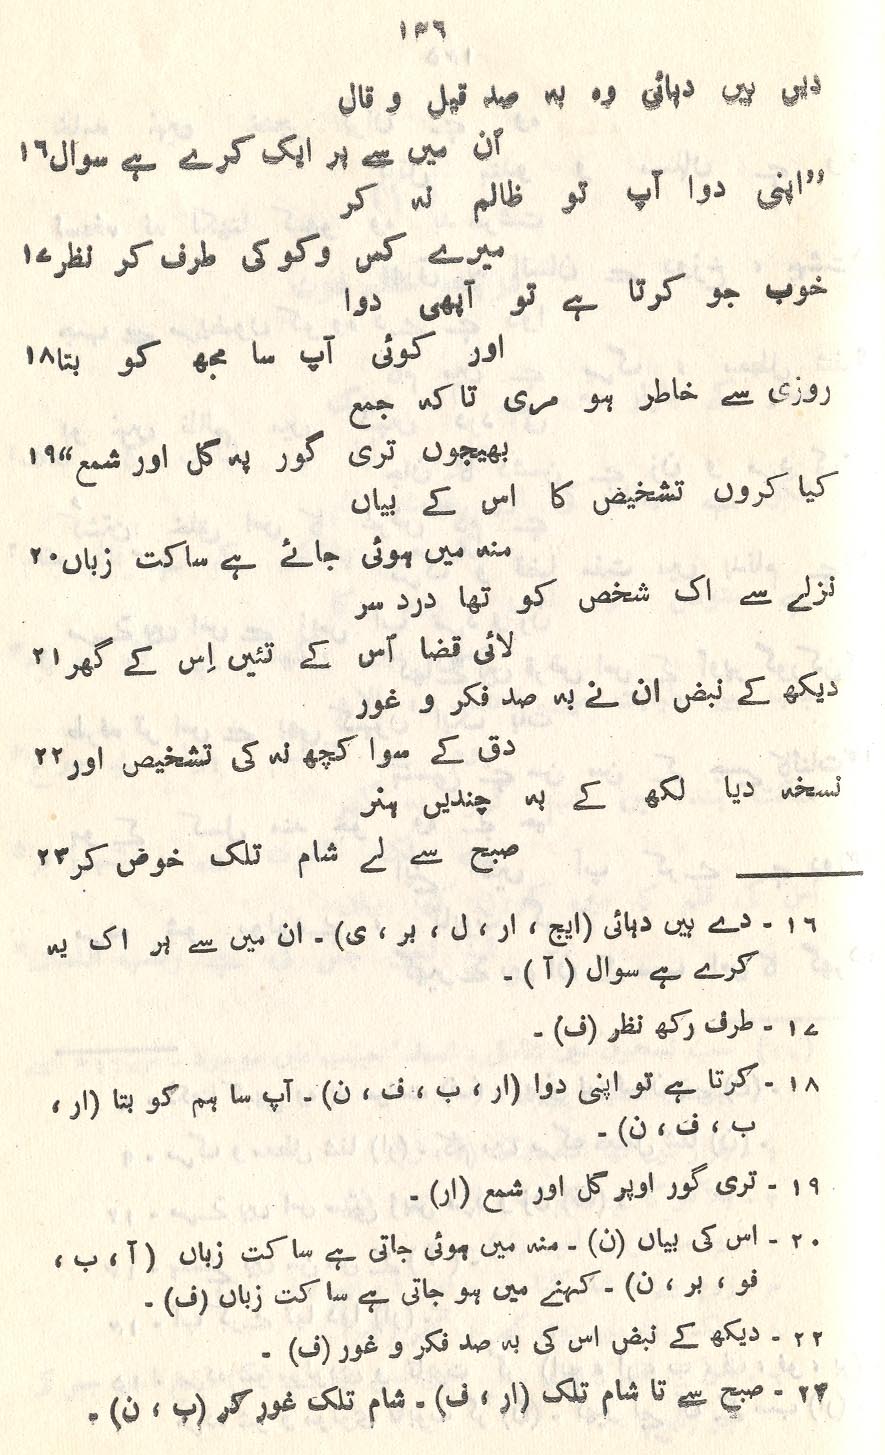 ۱۳٦
دیں ہیں دہائی وہ بہ صد قیل و قال
اُن میں سے ہر ایک کرے ہے سوال۱٦
”اپنی دوا آپ تو ظالم نہ کر
میرے کس و کو کی طرف کر نظر۱۷
خوب جو کرتا ہے تو آپھی دوا
اور کوئی آپ سا مجھ کو بتا۱۸
روزی سے خاطر ہو مری تا کہ جمع
بھیجوں تری گور پہ گل اور شمع“۱۹
کیا کروں تشخیص کا اس کے بیاں
منہ میں ہوئی جائے ہے ساکت زباں۲۰
نزلے سے اک شخص کو تھا درد سر
لائی قضا اُس کے تئیں اِس کے گھر۲۱
دیکھ کے نبض ان نے بہ صد فکر و غور
دق کے سوا کچھ نہ کی تشخیص اور۲۲
نسخہ دیا لکھ کے بہ چندیں ہنر
صبح سے لے شام تلک خوض کر۲۳
۱٦ - دے ہیں دہائی (ایچ ، ار ، ل ، بر ، ی) - ان میں سے ہر اک یہ
کرے ہے سوال (آ) -
۱۷ - طرف رکھ نظر (ف) -
۱۸ - کرتا ہے تو اپنی دوا (ار ، ب ، ف ، ن) - آپ سا ہم کو بتا (ار ،
ب ، ف ، ن) -
۱۹ - تری گور اوپر گل اور شمع (ار) -
۲۰ - اس کی بیاں (ن) - منہ میں ہوئی جاتی ہے ساکت زباں (آ ، ب ،
فو ، بر ، ن) - کہنے میں ہو جاتی ہے ساکت زباں (ف) -
۲۲ - دیکھ کے نبض اس کی بہ صد فکر و غور (ف) -
۲۳ - صبح سے تا شام تلک (ار ، ف) - شام تلک غور کر (ب ، ن) -